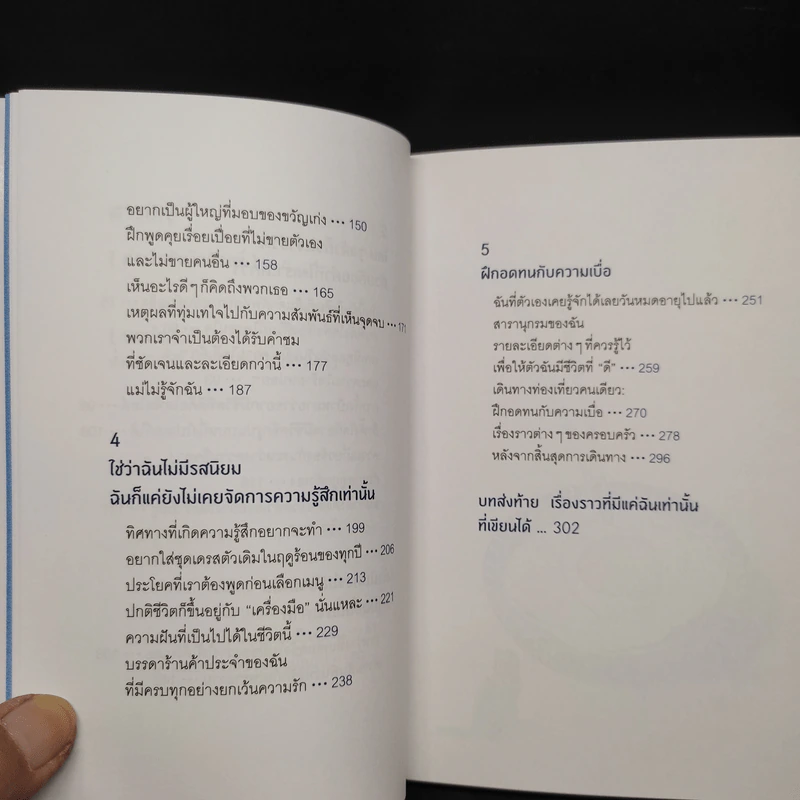 อยากเป็นผู้ใหญ่ที่มอบของขวัญเก่ง ••• 150
ฝึกพูดคุยเรื่อยเปื่อยที่ไม่ขายตัวเอง
และไม่ขายคนอื่น ••• 158
เห็นอะไรดีๆ ก็คิดถึงพวกเธอ ••• 165
เหตุผลที่ทุ่มเทใจไปกับความสัมพันธ์ที่เห็นจุดจบ ••• 171
พวกเราจำเป็นต้องได้รับคำชม
ที่ชัดเจนและละเอียดกว่านี้ ••• 177
แม่ไม่รู้จักฉัน ••• 187
4
ใช่ว่าฉันไม่มีรสนิยม
ฉันก็แค่ยังไม่เคยจัดการความรู้สึกเท่านั้น
ทิศทางที่เกิดความรู้สึกอยากจะทำ ••• 199
อยากใส่ชุดเดรสตัวเดิมในฤดูร้อนของทุกปี ••• 206
ประโยคที่เราต้องพูดก่อนเลือกเมนู ••• 213
ปกติชีวิตก็ขึ้นอยู่กับ “เครื่องมือ” นั่นแหละ ••• 221
ความฝันที่เป็นไปได้ในชีวิตนี้ ••• 229
บรรดาร้านค้าประจำของฉัน
ที่มีครบทุกอย่างยกเว้นความรัก ••• 238
5
ฝึกอดทนกับความเบื่อ
ฉันที่ตัวเองเคยรู้จักได้เลยวันหมดอายุไปแล้ว ••• 251
สารานุกรมของฉัน
รายละเอียดต่างๆ ที่ควรรู้ไว้
เพื่อให้ตัวฉันมีชีวิตที่ “ดี” ••• 259
เดินทางท่องเที่ยวคนเดียว:
ฝึกอดทนกับความเบื่อ ••• 270
เรื่องราวต่างๆ ของครอบครัว ••• 278
หลังจากสิ้นสุดการเดินทาง ••• 296
บทส่งท้าย เรื่องราวที่มีแค่ฉันเท่านั้น
ที่เขียนได้ ... 302